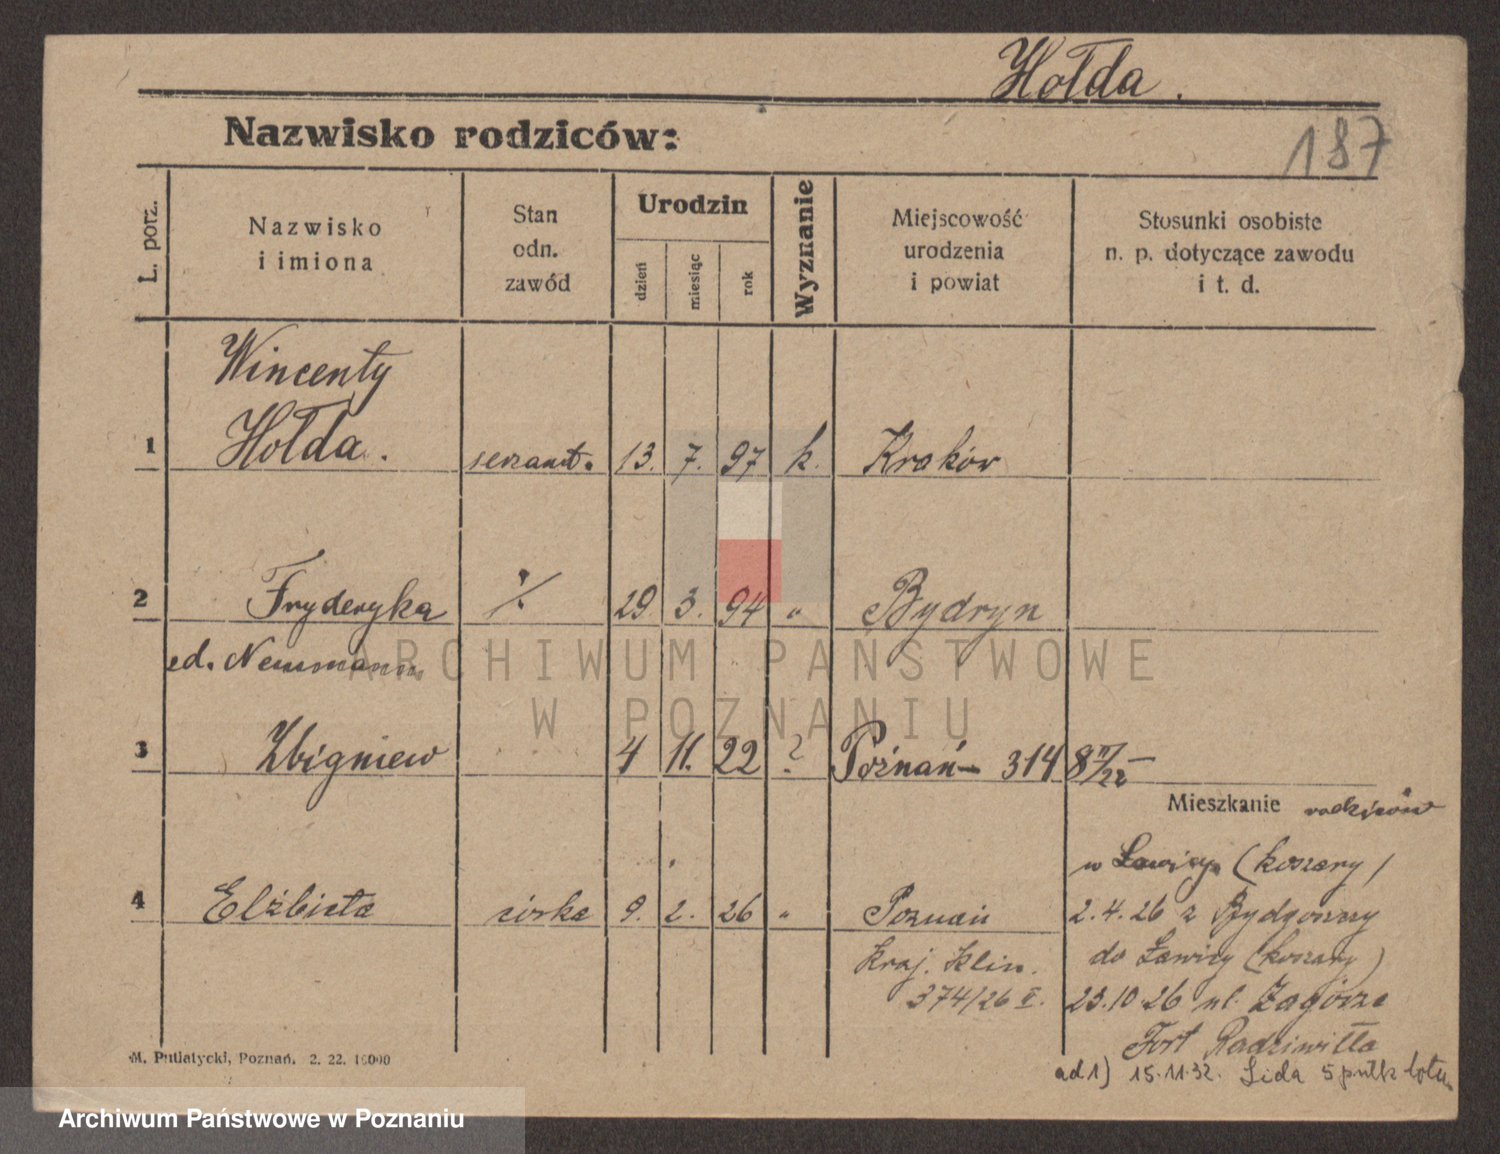 Hołda.
187
Nazwisko rodziców:
L. porz.
Nazwisko
i imiona
Stan
odn.
zawód
Urodzin
dzień
miesiąc
rok
Wyznanie
Miejscowość
urodzenia
i powiat
Stosunki osobiste
n. p. dotyczące zawodu
i t. d.
Wincenty
1 Hołda. serzant. 13. 7. 97 k. Kraków
2 Fryderyka ./. 29 3. 94 " Bydryn
ARCHIWUM PAŃSTWOWE
W POZNANIU
3 Zbigniew 4 11. 22 ? Poznań – 314
Mieszkanie rodziców
w Ławicy (koszary)
4 Elżbieta córka 9. 2. 26 " Poznań 2.4.26 z Bydgoszczy
Kraj. Klin. do Ławicy (koszary)
374/26 II. 23.10.26 ul. Zagórze
Fort Radziwiłła
M. Putiatycki, Poznań. 2. 22. 10000
ad 1) 15.11.32. Lida 5 pułk lotn.
Archiwum Państwowe w Poznaniu